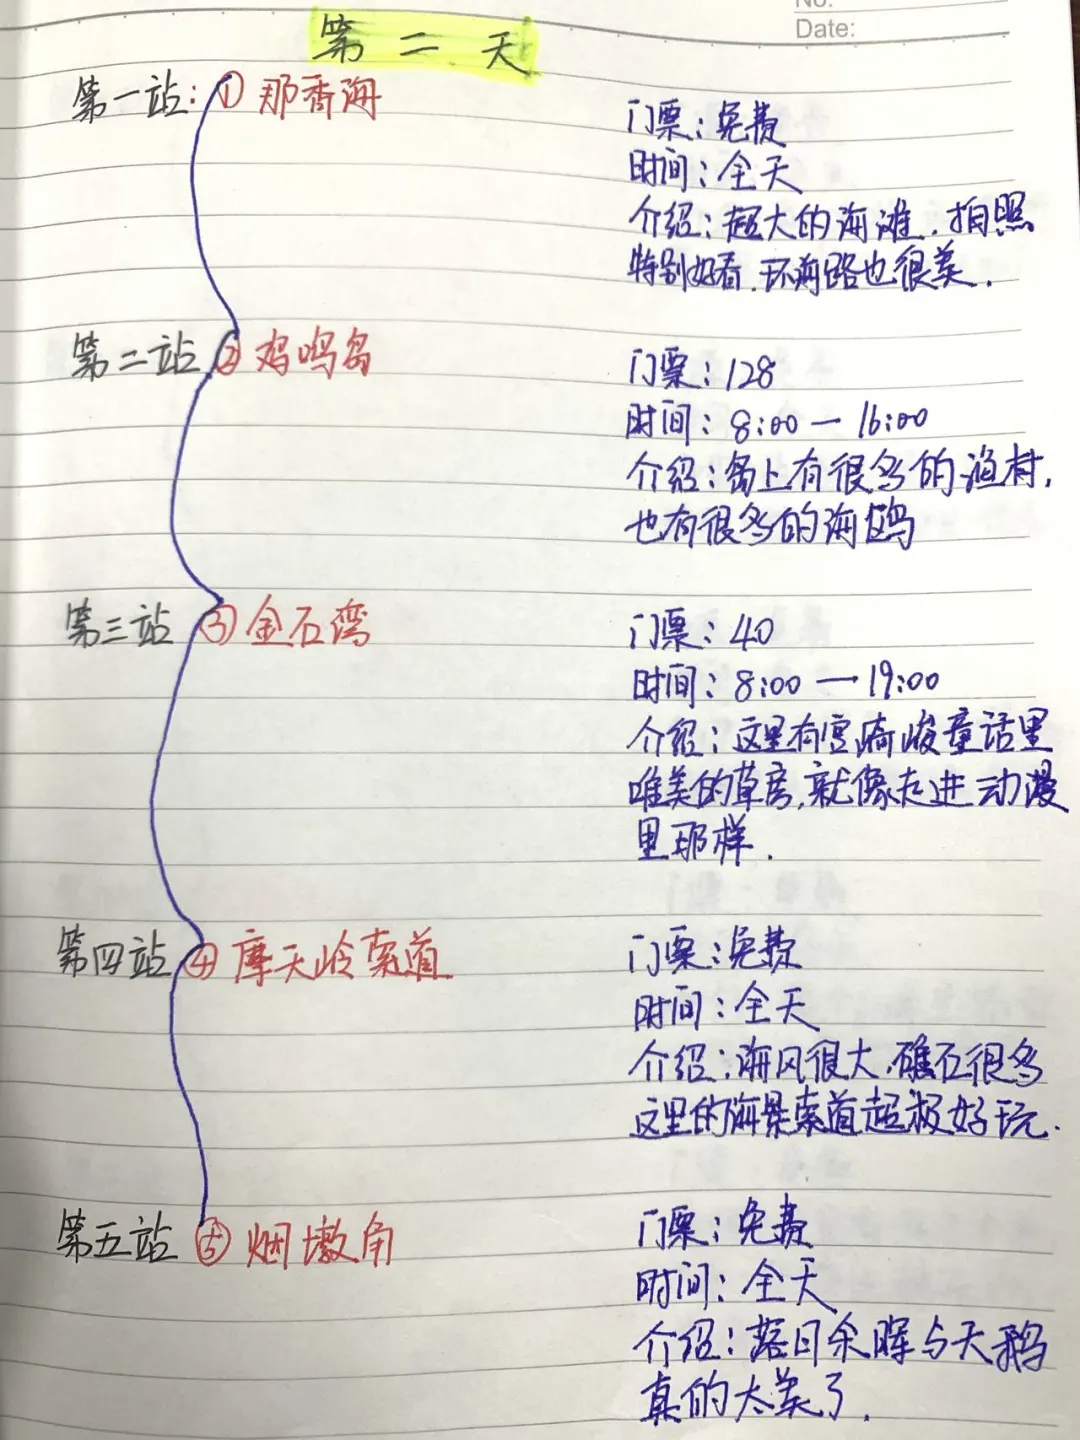 No:
Date:
第二天
第一站：① 那香海
门票：免费
时间：全天
介绍：超大的海滩．拍照
特别好看．环海路也很美．
第二站 ② 鸡鸣岛
门票：128
时间：8:00 — 16:00
介绍：岛上有很多的渔村，
也有很多的海鸥
第三站 ③ 金石湾
门票：40
时间：8:00 — 19:00
介绍：这里有宫崎骏童话里
唯美的草房，就像走进动漫
里那样．
第四站 ④ 摩天岭索道
门票：免费
时间：全天
介绍：海风很大．礁石很多
这里的海景索道超级好玩．
第五站 ⑤ 烟墩角
门票：免费
时间：全天
介绍：落日余晖与天鹅
真的太美了．